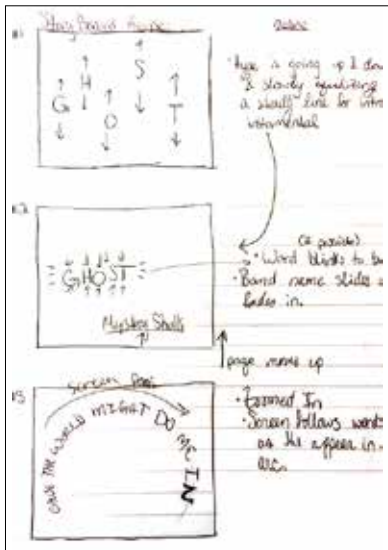 Story Board
#1
G H O S T
type is going up & down
& slowly equalizing
a steady line for intro
instrumental
#2
GHOST
Mystery Skulls
(if possible)
• Word blinks to
• Band name slides
fades in.
page moves up
#3
screen
CAUSE THE WORLD MIGHT DO ME IN
• Zoomed In
• Screen follows words
as they appear in
arc.